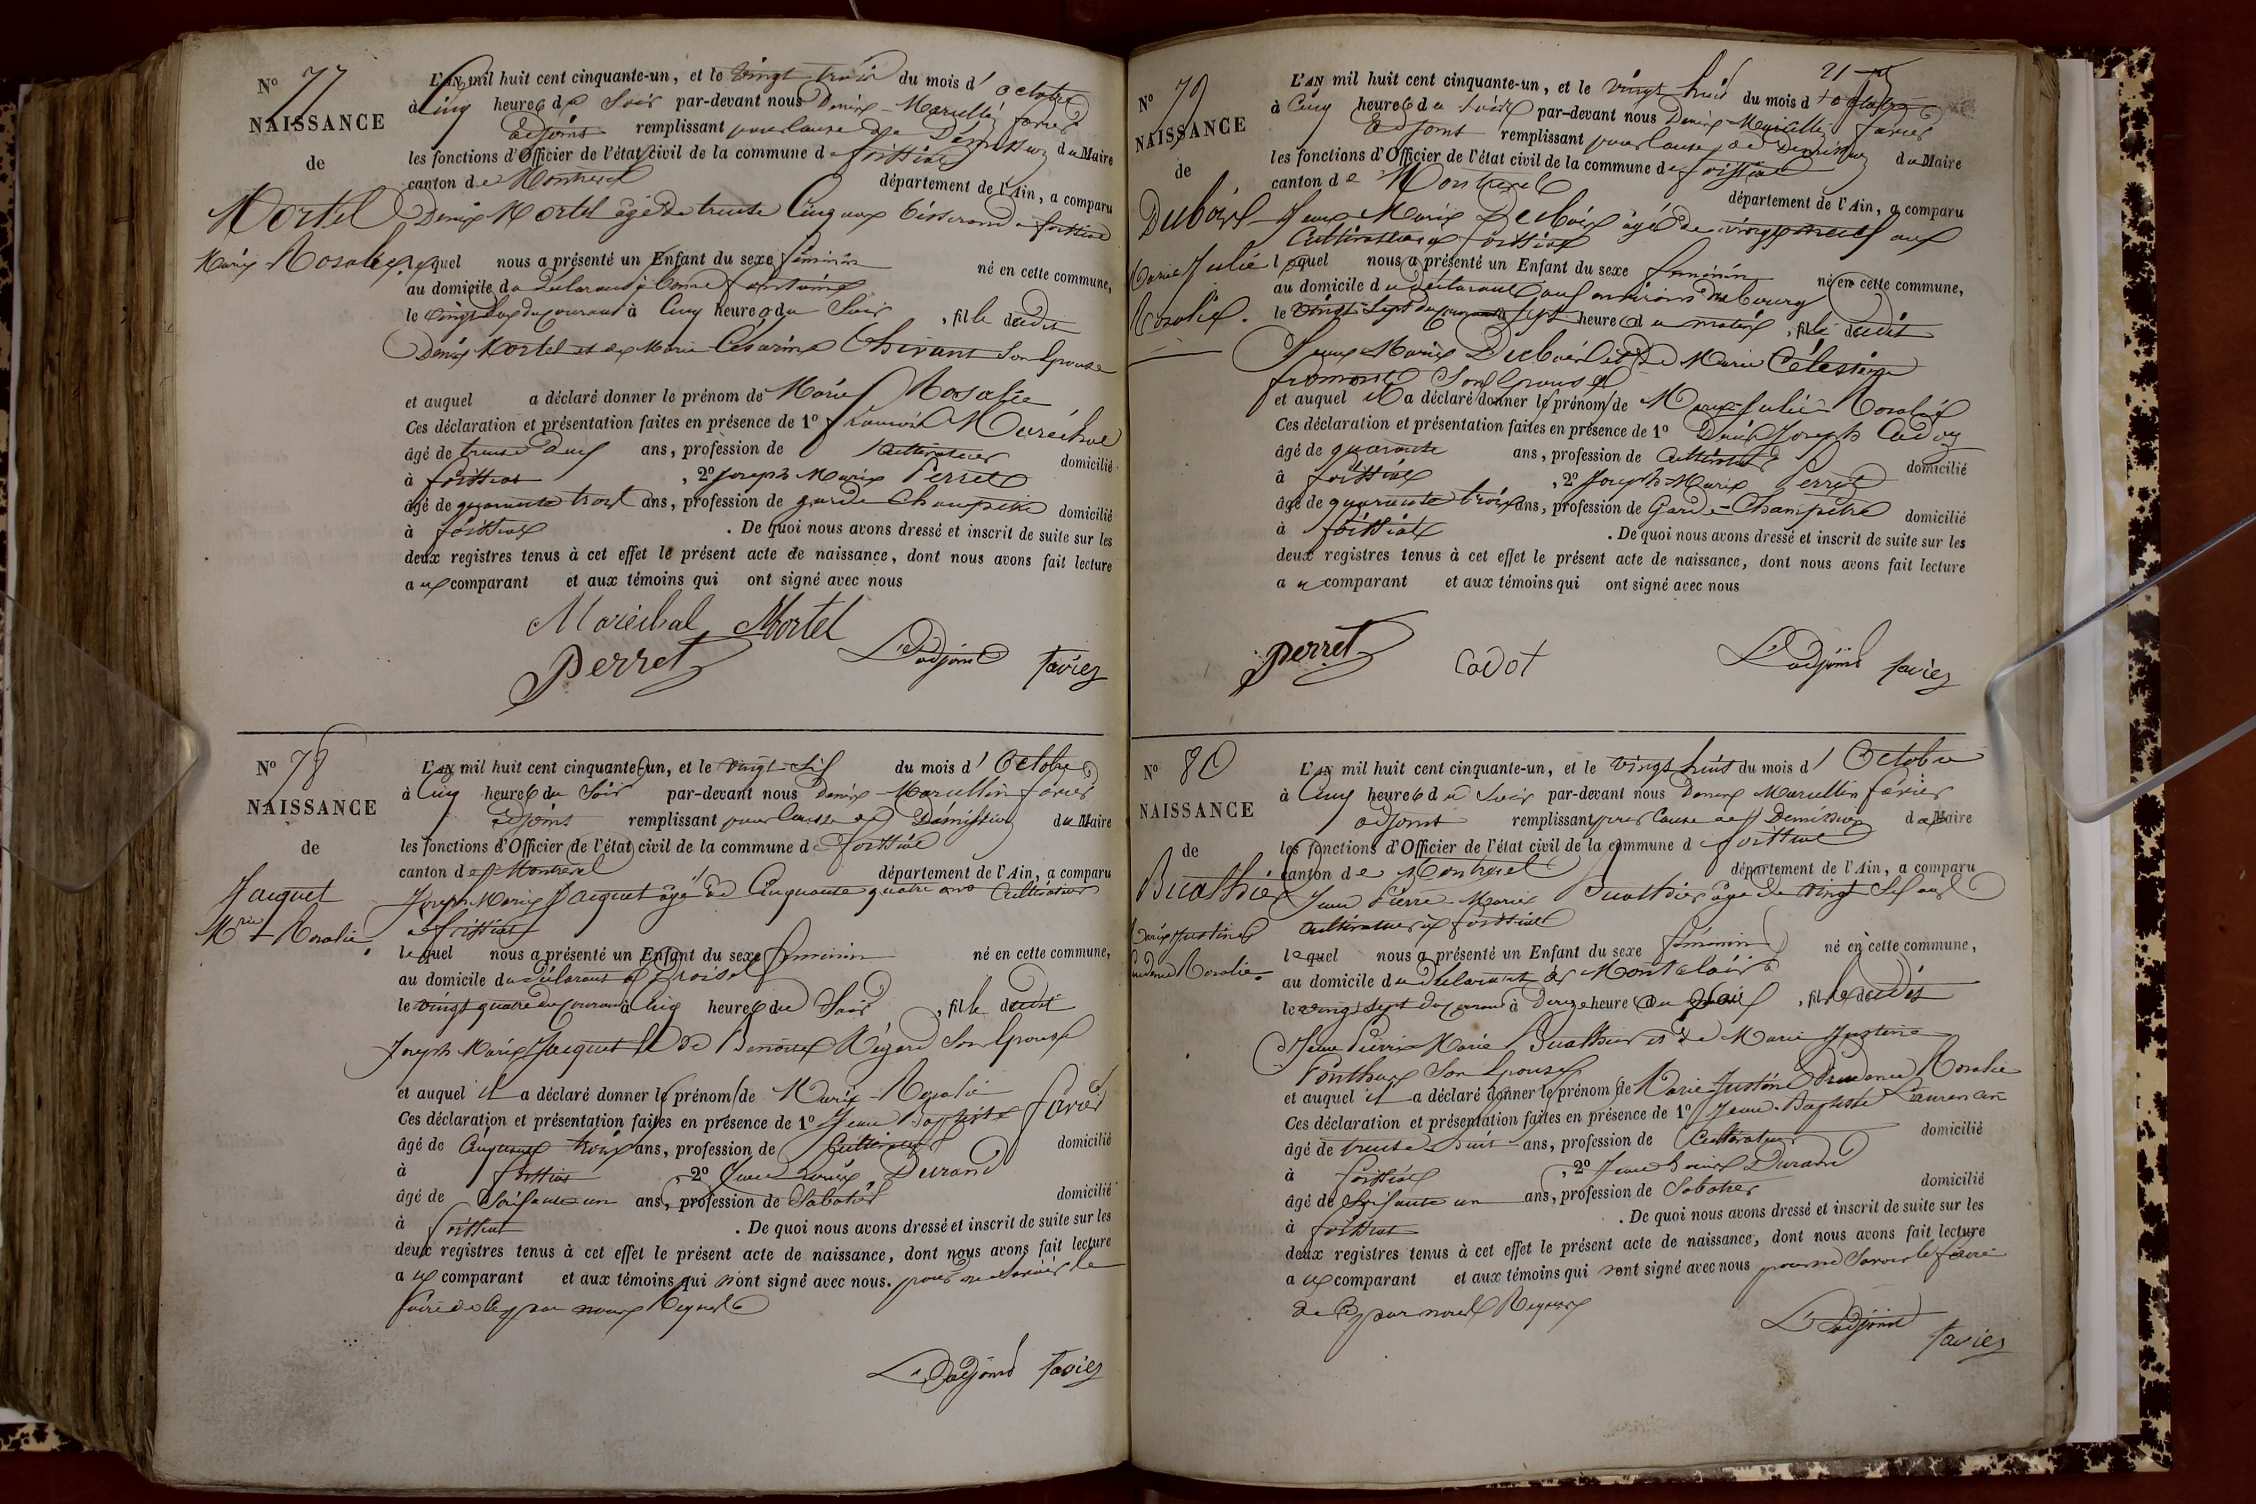 N° 77
NAISSANCE
de
Mortel
Marie Rosalie
L'AN mil huit cent cinquante-un, et le vingt trois du mois d'octobre
à Cinq heures du Soir par-devant nous Denis-Marcellin favier
adjoint remplissant pour Cause de Démission du Maire
les fonctions d'Officier de l'état civil de la commune de foissiat
canton de Montrevel département de l'Ain, a comparu
Denis Mortel âgé de trente Cinq ans tisserand à foissiat
lequel nous a présenté un Enfant du sexe féminin né en cette commune,
au domicile du déclarant à
le vingt deux du courant à Cinq heures du Soir, fille dudit
Denis Mortel et de Marie Césarine Chirant Son Epouse
et auquel a déclaré donner le prénom de Marie Rosalie
Ces déclaration et présentation faites en présence de 1° françois Maréchal
âgé de trente ans, profession de Cultivateur domicilié
à foissiat, 2° Joseph-Marie Perret
âgé de quarante trois ans, profession de garde Champêtre domicilié
à foissiat. De quoi nous avons dressé et inscrit de suite sur les
deux registres tenus à cet effet le présent acte de naissance, dont nous avons fait lecture
au comparant et aux témoins qui ont signé avec nous
Maréchal Mortel
Perret L'adjoint favier
N° 78
NAISSANCE
de
Jacquet
Mrie Rosalie
L'AN mil huit cent cinquante-un, et le vingt-six du mois d'Octobre
à Cinq heures du Soir par-devant nous Denis-Marcellin favier
adjoint remplissant pour Cause de Démission du Maire
les fonctions d'Officier de l'état civil de la commune de foissiat
canton de Montrevel département de l'Ain, a comparu
Joseph Marie Jacquet âgé de Cinquante quatre ans Cultivateur
à foissiat
lequel nous a présenté un Enfant du sexe féminin né en cette commune,
au domicile du déclarant à
le vingt quatre du courant à Cinq heures du Soir, fille dudit
Joseph Marie Jacquet et de Benoite Régard Son Epouse
et auquel il a déclaré donner le prénom de Marie-Rosalie
Ces déclaration et présentation faites en présence de 1° Jean Baptiste favier
âgé de Cinquante trois ans, profession de Cultivateur domicilié
à foissiat, 2° Jean Louis Durand
âgé de Soixante un ans, profession de Sabotier domicilié
à foissiat. De quoi nous avons dressé et inscrit de suite sur les
deux registres tenus à cet effet le présent acte de naissance, dont nous avons fait lecture
au comparant et aux témoins qui n'ont signé avec nous. pour ne Savoir le
faire de Ce par nous Requis
L'adjoint favier
21
N° 79
NAISSANCE
de
Dubois
Marie Julie
Rosalie.
L'AN mil huit cent cinquante-un, et le vingt huit du mois d'octobre
à Cinq heures du Soir par-devant nous Denis-Marcellin favier
adjoint remplissant pour Cause de Démission du Maire
les fonctions d'Officier de l'état civil de la commune de foissiat
canton de Montrevel département de l'Ain, a comparu
Jean Marie Dubois âgé de vingt neuf ans
Cultivateur à foissiat
lequel nous a présenté un Enfant du sexe féminin né en cette commune,
au domicile du déclarant aux environs du bourg
le vingt-Sept du courant à Sept heures du matin, fille dudit
Jean-Marie Dubois et de Marie Célestine
fromont Son Epouse
et auquel il a déclaré donner le prénom de Marie-Julie-Rosalie
Ces déclaration et présentation faites en présence de 1° Denis Joseph Cadot
âgé de quarante ans, profession de Cultivateur domicilié
à foissiat, 2° Joseph-Marie Perret
âgé de quarante trois ans, profession de Garde-Champêtre domicilié
à foissiat. De quoi nous avons dressé et inscrit de suite sur les
deux registres tenus à cet effet le présent acte de naissance, dont nous avons fait lecture
au comparant et aux témoins qui ont signé avec nous
perret Cadot L'adjoint favier
N° 80
NAISSANCE
de
Buathier
Marie Justine
Prudence Rosalie.
L'AN mil huit cent cinquante-un, et le vingt huit du mois d'Octobre
à Cinq heures du Soir par-devant nous Denis Marcellin favier
adjoint remplissant pour Cause de Démission du Maire
les fonctions d'Officier de l'état civil de la commune de foissiat
canton de Montrevel département de l'Ain, a comparu
Jean Pierre-Marie Buathier âgé de vingt Six ans
Cultivateur à foissiat
lequel nous a présenté un Enfant du sexe féminin né en cette commune,
au domicile du déclarant à Montclair
le vingt sept du courant à Onze heures du Soir, fille dudit
Jean Pierre Marie Buathier et de Marie Justine
Ponthus Son Epouse
et auquel il a déclaré donner le prénom de Marie Justine Prudence Rosalie
Ces déclaration et présentation faites en présence de 1° Jean-Baptiste Laurencin
âgé de trente huit ans, profession de Cultivateur domicilié
à foissiat, 2° Jean Louis Durand
âgé de Soixante un ans, profession de Sabotier domicilié
à foissiat. De quoi nous avons dressé et inscrit de suite sur les
deux registres tenus à cet effet le présent acte de naissance, dont nous avons fait lecture
au comparant et aux témoins qui n'ont signé avec nous pour ne Savoir le faire
de Ce par nous Requis
L'adjoint favier